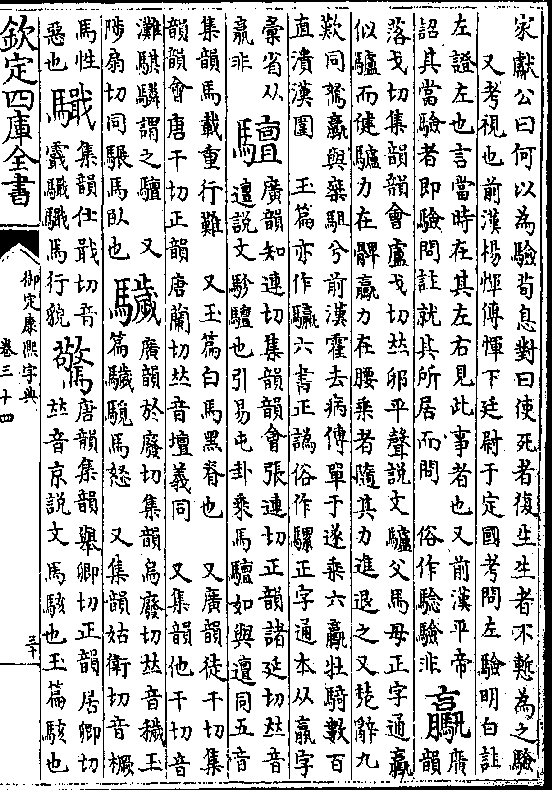 家獻公曰何以為驗荀息對曰使死者復生生者不慙為之驗
又考視也前漢楊惲傳惲下廷尉于定國考問左驗明白註
左證左也言當時在其左右見此事者也又前漢平帝
詔其當驗者即驗問註就其所居而問 俗作騐驗非 驘 廣韻
落戈切集韻韻會盧戈切𠀤卵平聲說文驢父馬母正字通驘
似驢而健驢力在髀驘力在腰乘者隨其力進退之又楚辭九
歎同駑驘與椉駔兮前漢霍去病傳單于遂乘六驘壯騎數百
直潰漢圍 玉篇亦作驘六書正譌俗作騾正字通本从驘字
彙省从羸非 驙 廣韻知連切集韻韻會張連切正韻諸延切𠀤音
邅說文駗驙也引易屯卦乘馬驙如與邅同五音
集韻馬載重行難 又玉篇白馬黑脊也 又廣韻徒干切集
韻韻會唐干切正韻唐蘭切𠀤音壇義同 又集韻他干切音
灘騏驎謂之驙 又
陟扇切同𩥇馬臥也 䮹 廣韻於廢切集韻烏廢切𠀤音穢玉
篇䮹䮘馬怒 又集韻姑衛切音橛
馬性惡也 集韻仕戢切音
霵 馬行貌 驚 唐韻集韻舉卿切正韻居卿切
𠀤音京說文馬駭也玉篇駭也
欽定四庫全書
御定康熙字典
卷三十四